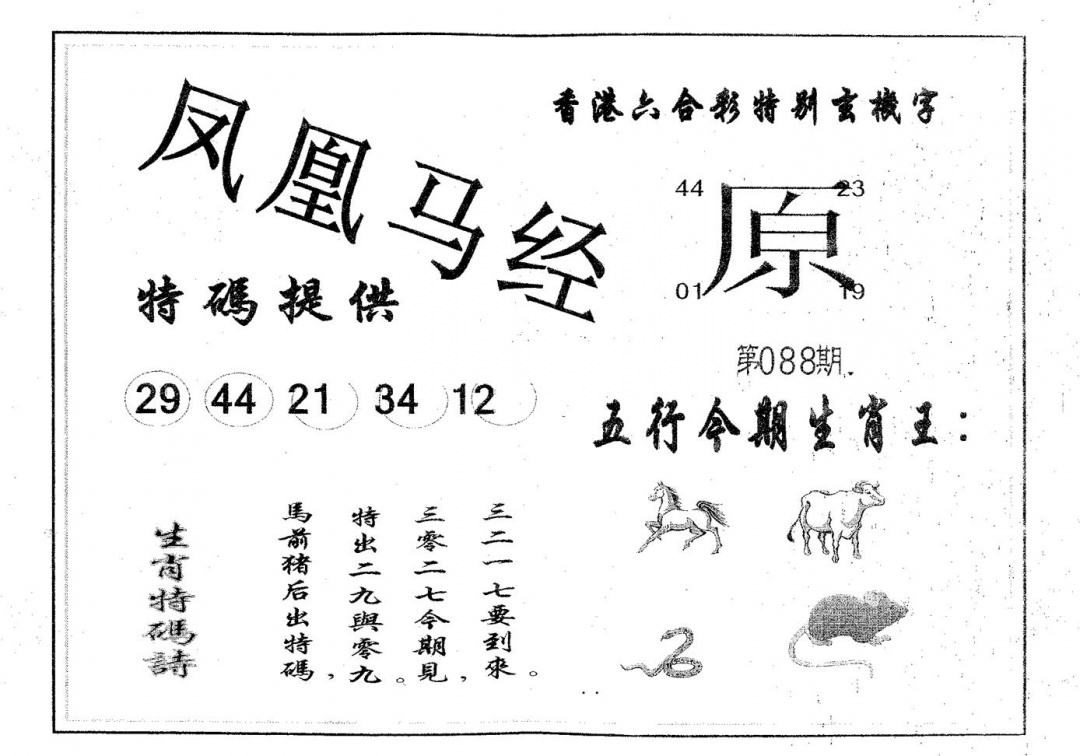 凤凰马经
香港六合彩特别玄機字
44 23
原
01 19
特碼提供
第088期.
29 44 21 34 12
五行今期生肖王：
生肖特碼詩
馬前猪后出特碼，
特出二九與零九。
三零二七今期見，
三二一七要到來。